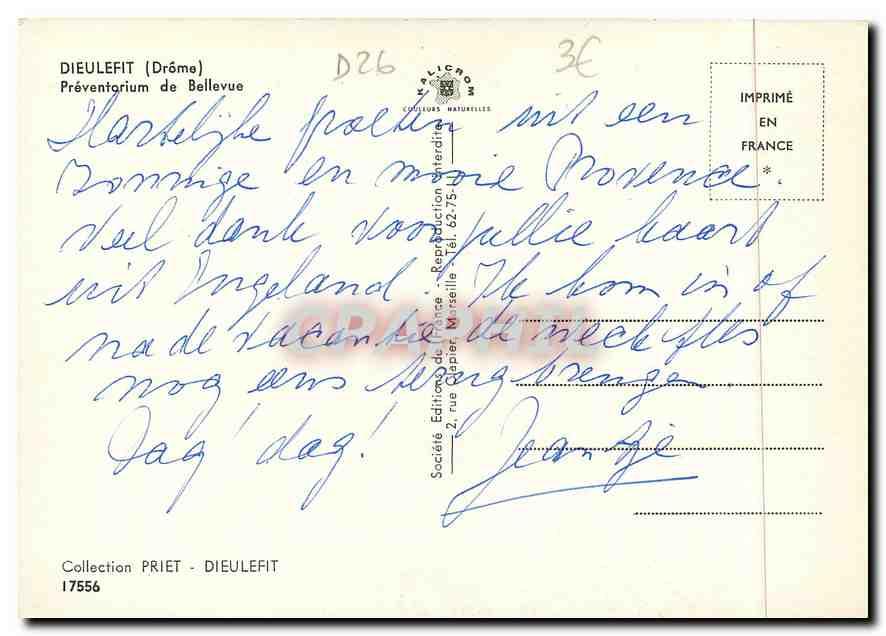 DIEULEFIT (Drôme)
Préventorium de Bellevue
D26
3€
KALICROM
COULEURS NATURELLES
IMPRIMÉ
EN
FRANCE
*
Hartelijke groeten uit een
zonnige en mooie Provence.
Veel dank voor jullie kaart
uit Engeland. Ik kom in of
na de vacantie de weckfles
nog eens terugbrengen.
Dag! dag!
Jeantje
Société Editions de France - Reproduction interdite
2, rue Clapier, Marseille - Tél. 62-75-11
CPAPHIL
Collection PRIET - DIEULEFIT
17556